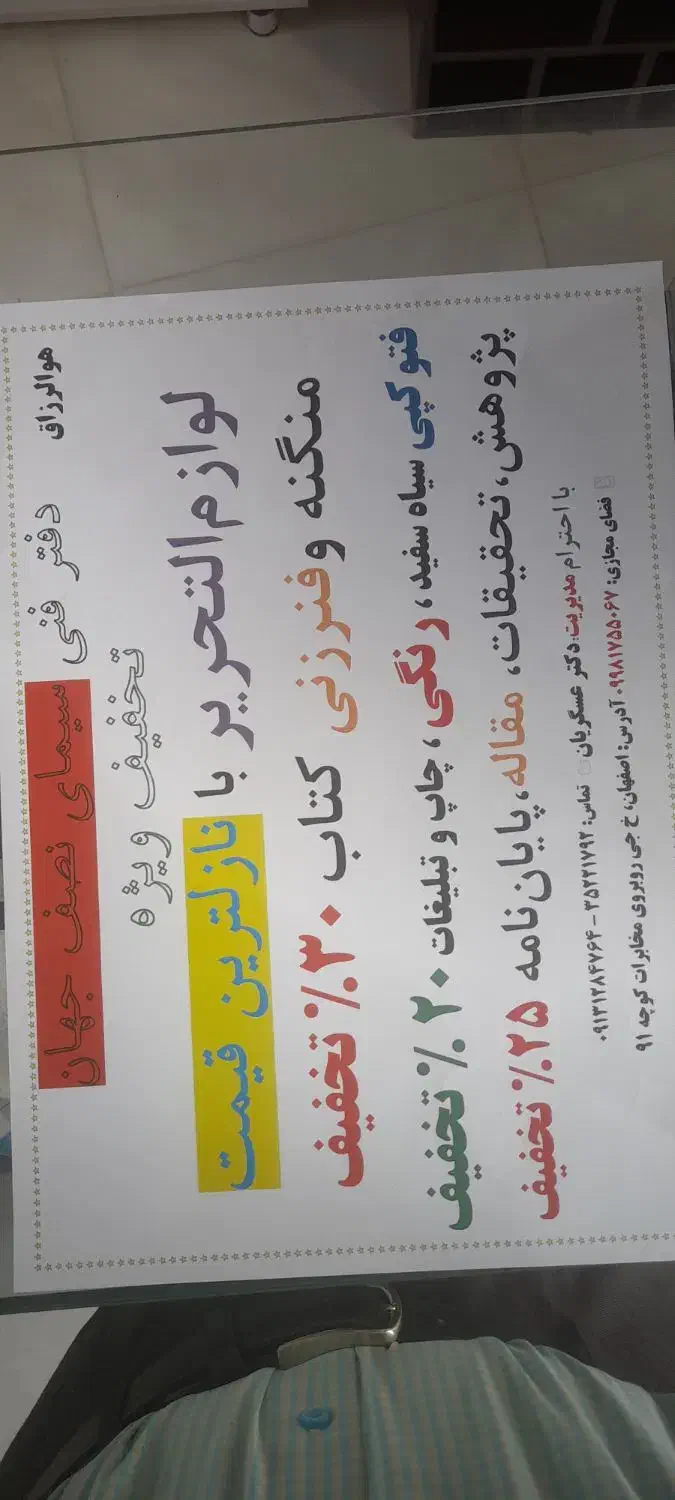 هوالرزاق
دفتر فنی سیمای نصف جهان
تخفیف ویژه
لوازم التحریر با نازلترین قیمت
منگنه و فنرزنی کتاب ۳۰٪ تخفیف
فتوکپی سیاه سفید، رنگی، چاپ و تبلیغات ۲۰٪ تخفیف
پژوهش، تحقیقات، مقاله، پایان‌نامه ۲۵٪ تخفیف
با احترام مدیریت: دکتر عسگریان تماس: ۳۵۲۲۱۷۹۲ - ۰۹۱۳۱۲۸۴۷۶۴
فضای مجازی: ۰۹۹۸۱۷۵۵۰۶۷ آدرس: اصفهان، خ جی روبروی مخابرات کوچه ۹۱